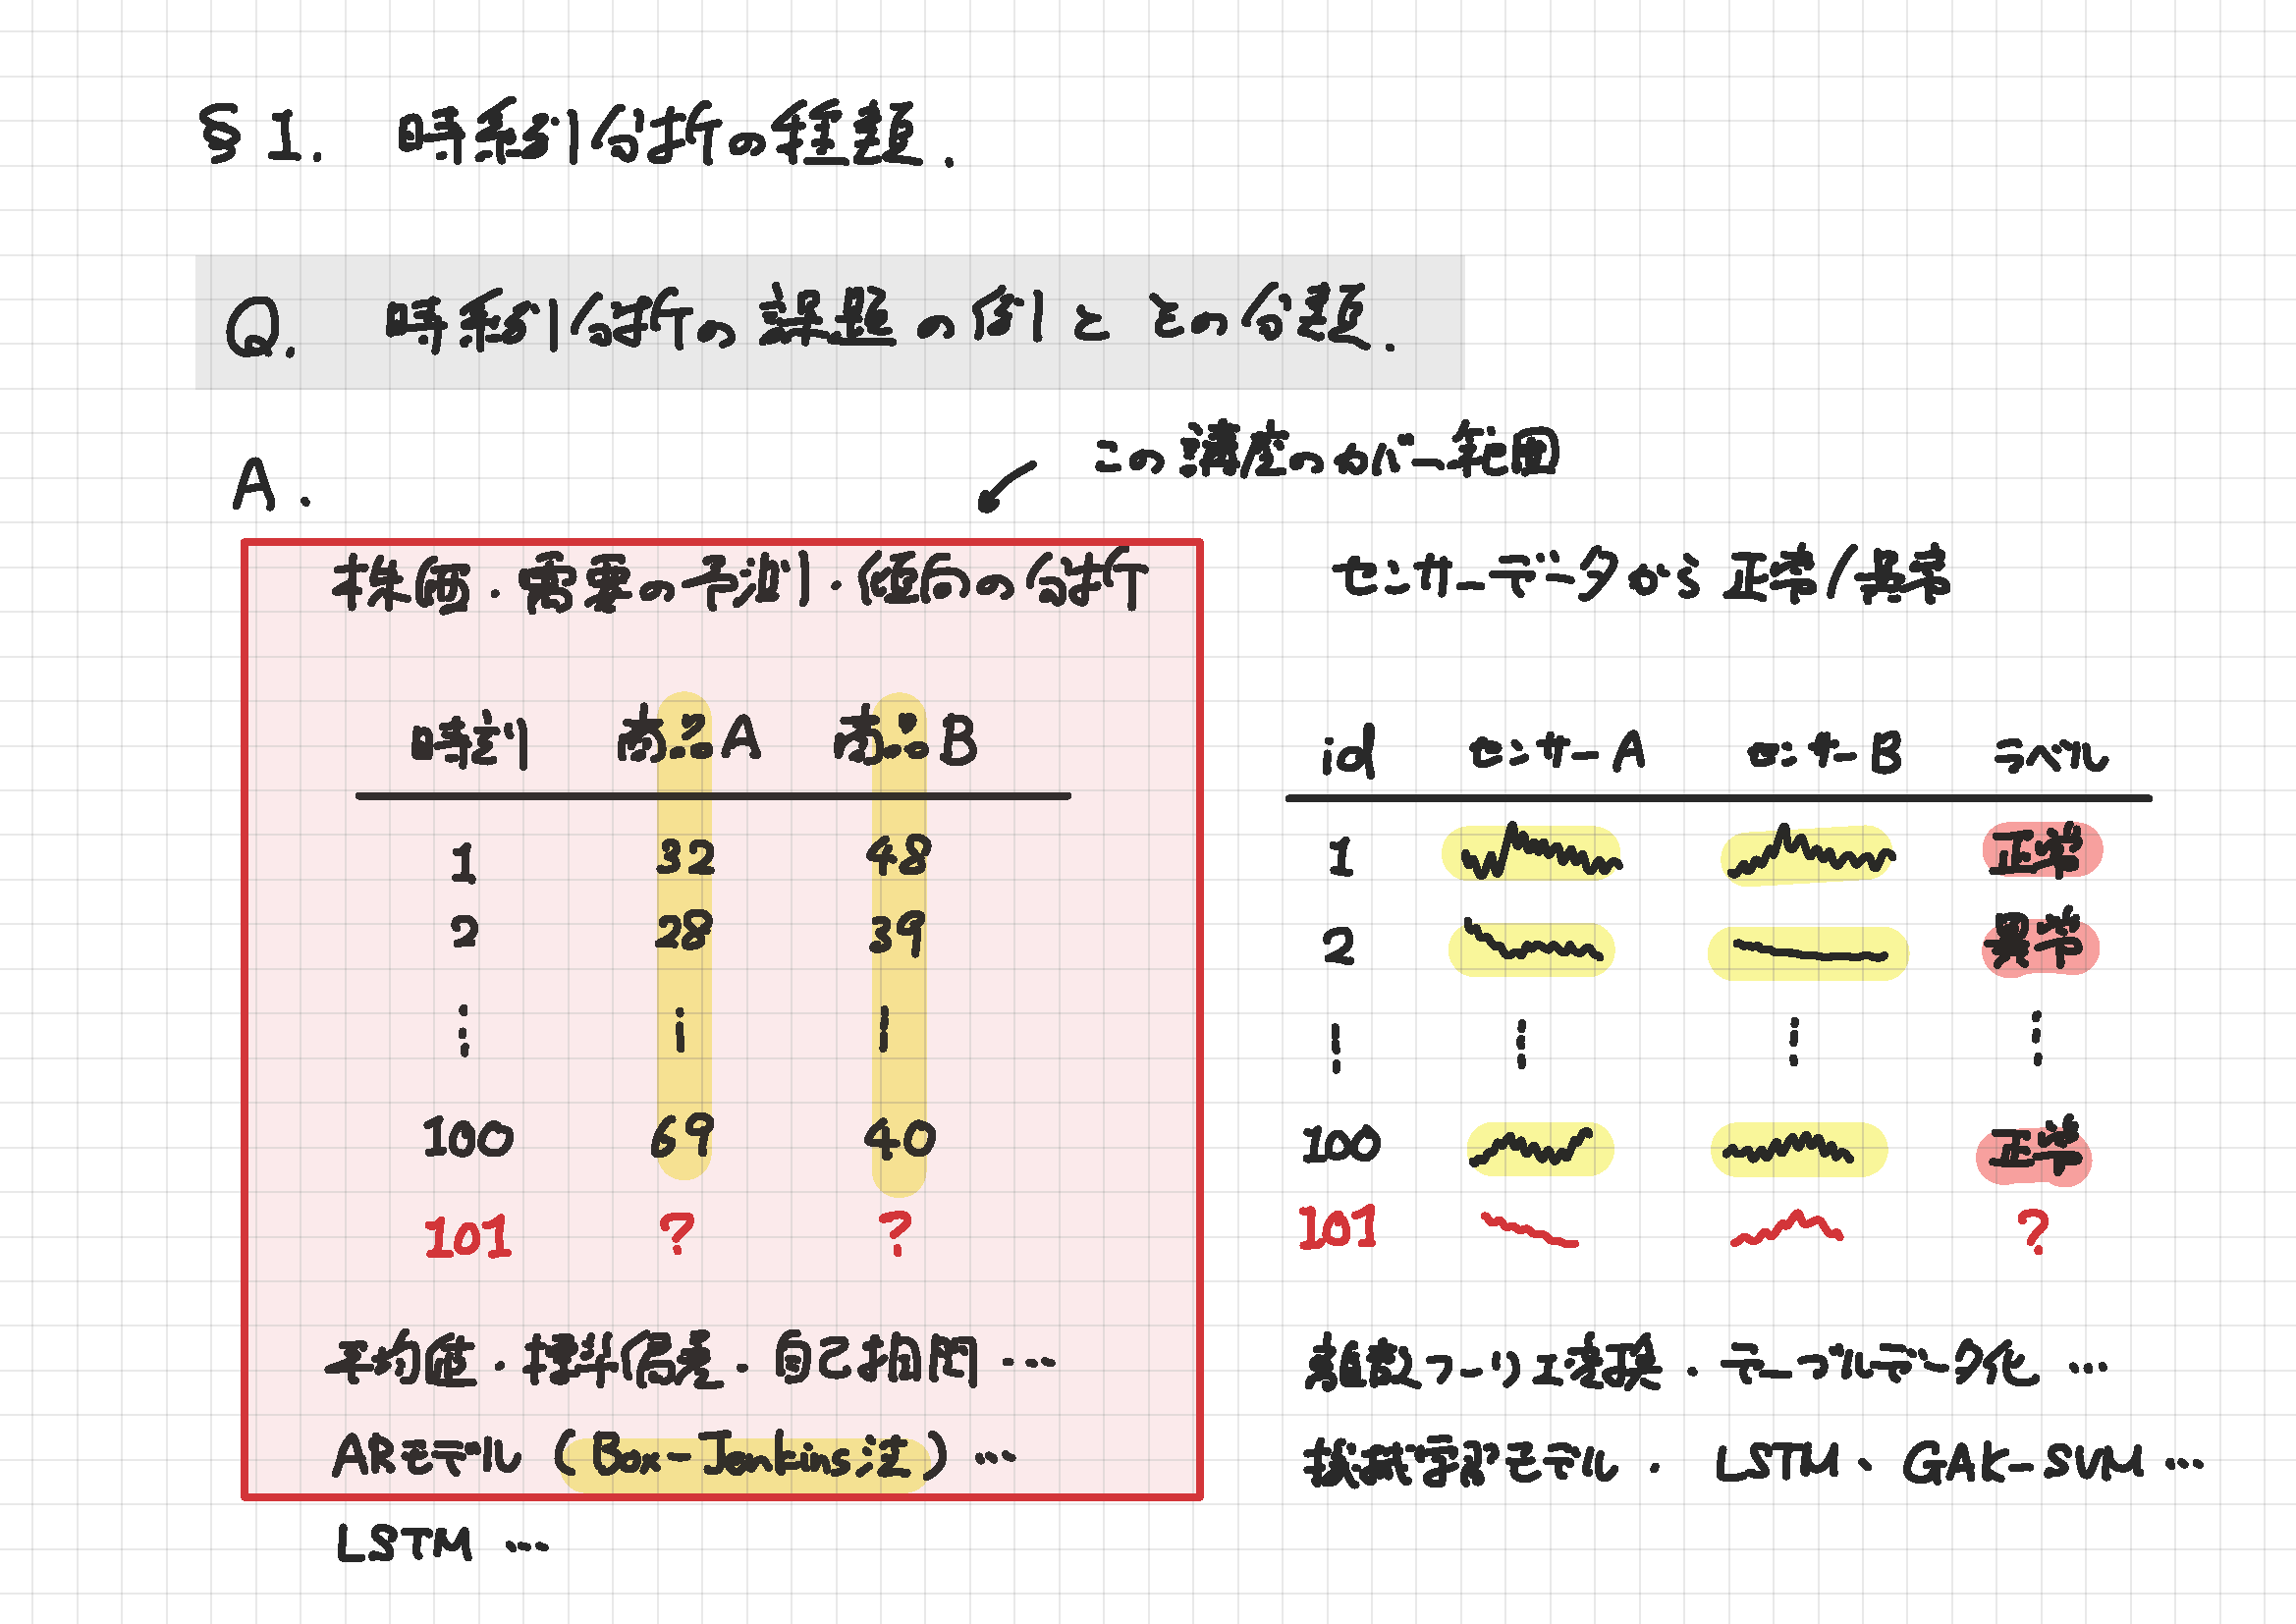 §1. 時系列分析の種類.
Q. 時系列分析の課題の例とその分類.
A.
この講座のカバー範囲
株価・需要の予測・傾向の分析
時刻 商品A 商品B
1 32 48
2 28 39
⋮ ⋮ ⋮
100 69 40
101 ? ?
平均値・標準偏差・自己相関…
ARモデル (Box-Jenkins法)…
LSTM …
センサーデータから正常/異常
id センサーA センサーB ラベル
1 正常
2 異常
⋮ ⋮ ⋮ ⋮
100 正常
101 ?
離散フーリエ変換・テーブルデータ化…
機械学習モデル・LSTM、GAK-SVM…